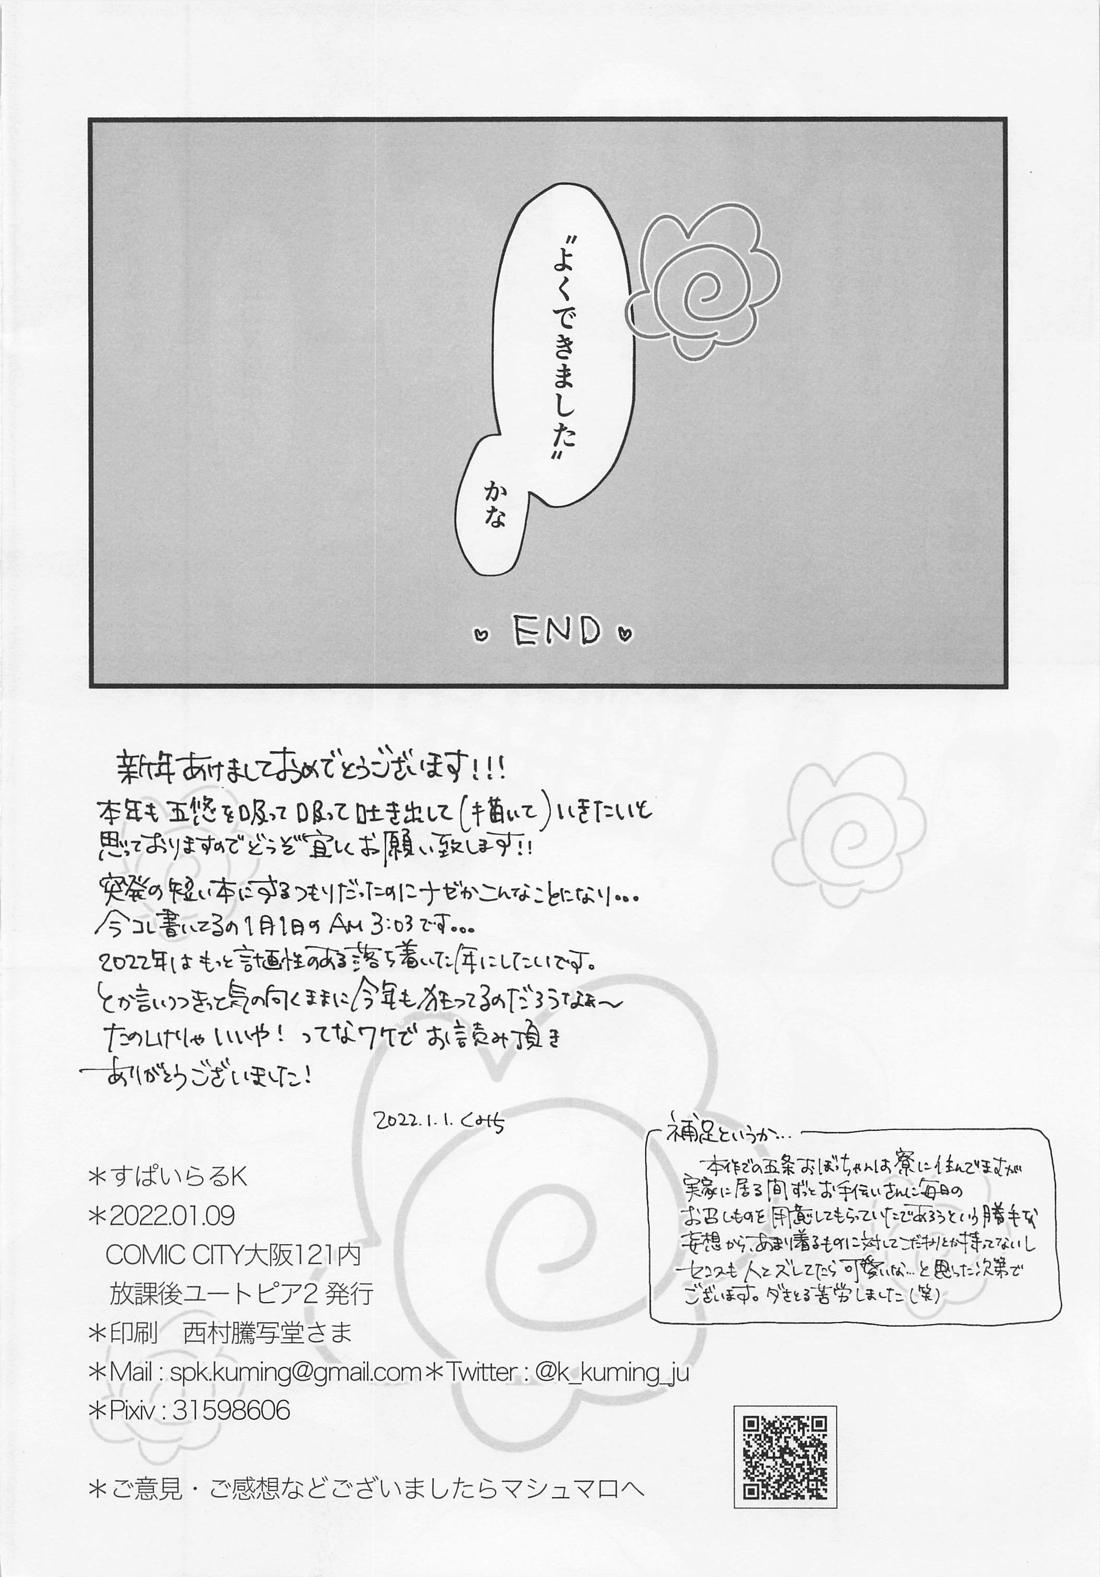 “よくできました”
かな
END
新年あけましておめでとうございます!!!
本年も五悠を吸って吸って吐き出して(描いて)いきたいと
思っておりますのでどうぞ宜しくお願い致します!!
突発の短い本にするつもりだったのにナゼかこんなことになり...
今コレ書いてるの1月1日のAM 3:03です...
2022年はもっと計画性のある落ち着いた年にしたいです。
とか言いつつきっと気の向くままに今年も狂ってるのだろうなぁ〜
たのしけりゃいいや! ってなワケでお読み頂き
ありがとうございました!
2022.1.1. くみち
補足というか...
本作での五条おぼっちゃんは寮に住んでますが
実家に居る間ずっとお手伝いさんに毎日の
お召しものを用意してもらっていたであろうという勝手な
妄想から、あまり着るものに対してこだわりとか持ってないし
センスも人とズレてたら可愛いな...と思った次第で
ございます。ダサとる苦労しました(笑)
＊すぱいらるK
＊2022.01.09
COMIC CITY大阪121内
放課後ユートピア2 発行
＊印刷　西村謄写堂さま
＊Mail : spk.kuming@gmail.com＊Twitter : @k_kuming_ju
＊Pixiv : 31598606
＊ご意見・ご感想などございましたらマシュマロへ